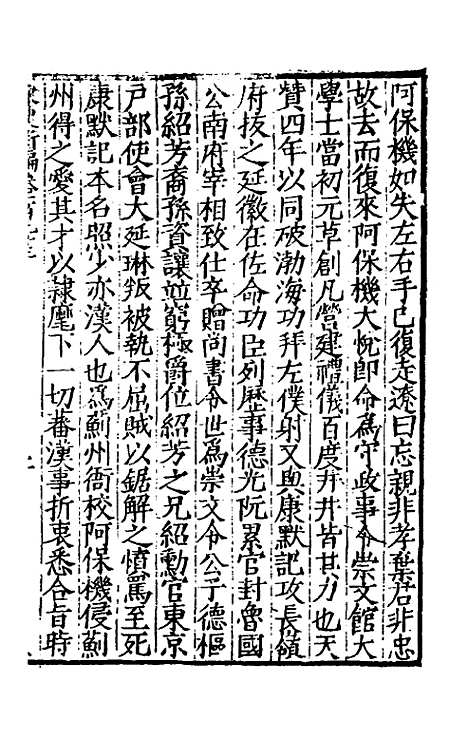 阿保機如失左右手已復走遼曰忘親非孝棄君非忠
故去而復來阿保機大悅即命爲守政事令崇文館大
學士當初元草創凡營建禮儀百度井井皆其力也天
贊四年以同破渤海功拜左僕射又與康默記攻長嶺
府拔之延徽在佐命功臣列歷事德光阮累官封魯國
公南府宰相致仕卒贈尚書令世爲崇文令公子德樞
孫紹芳裔孫資讓並窮極爵位紹芳之兄紹勳官東京
戸部使會大延琳叛被執不屈賊以鋸解之憤罵至死
康默記本名照少亦漢人也爲薊州衙校阿保機侵薊
州得之愛其才以隷麾下一切蕃漢事折衷悉合旨時
史新編卷